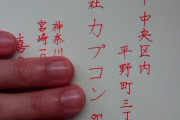 中央区内
平野町三丁
社カプコン
神奈川
宮崎一